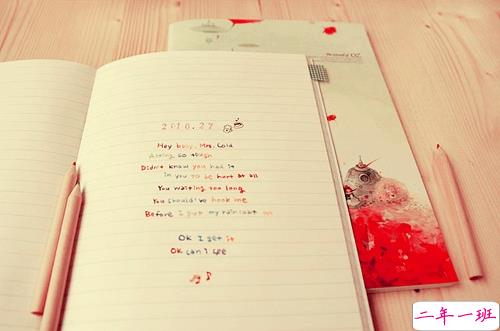 2010.27
Hey boby, Mrs. Cold
Acting so tough
Didn't know you had it
in you TO be hurt at all
You waiting too long
You should've hook me
Before I put my raincoat on
Ok I get it
Ok can I see
二年一班